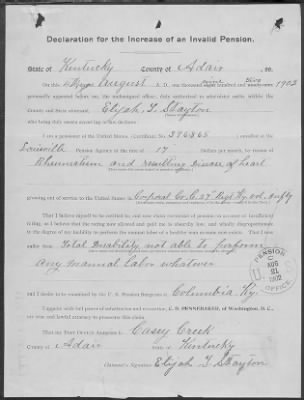 Declaration for the Increase of an Invalid Pension.
State of Kentucky County of Adair, ss:
On this August A. D., one thousand eight hundred and ninety- 1902
personally appeared before me, the undersigned officer, fully authorized to administer oaths within the
County and State aforesaid Elijah T. Stayton
who being duly sworn according to law declares:
I am a pensioner of the United States (Certificate No. 396865) enrolled at the
Louisville Pension Agency at the rate of 17 Dollars per month, by reason of
Rheumatism and resulting disease of heart
growing out of service to the United States in Corporal Co. C. 27 Regt Ky. vol. infty
That I believe myself to be entitled to, and now claim increase of pension on account of insufficiency of
rating, as I believe that the rating now allowed and paid me is unjustly low, and wholly disproportionate
to the degree of my inability to perform the manual labor of a healthy man in same now exists. That I now
suffer from Total Disability, not able to perform
any manual labor whatever
and I desire to be examined by the U. S. Pension Surgeons at Columbia Ky.
I appoint with full power of substitution and revocation, of Washington, D. C.,
my true and lawful attorney to prosecute this claim.
That my Post Office Address is Casey Creek
County of Adair State of Kentucky
Claimant's Signature Elijah T Stayton
PENSION
AUG
21
1902
OFFICE